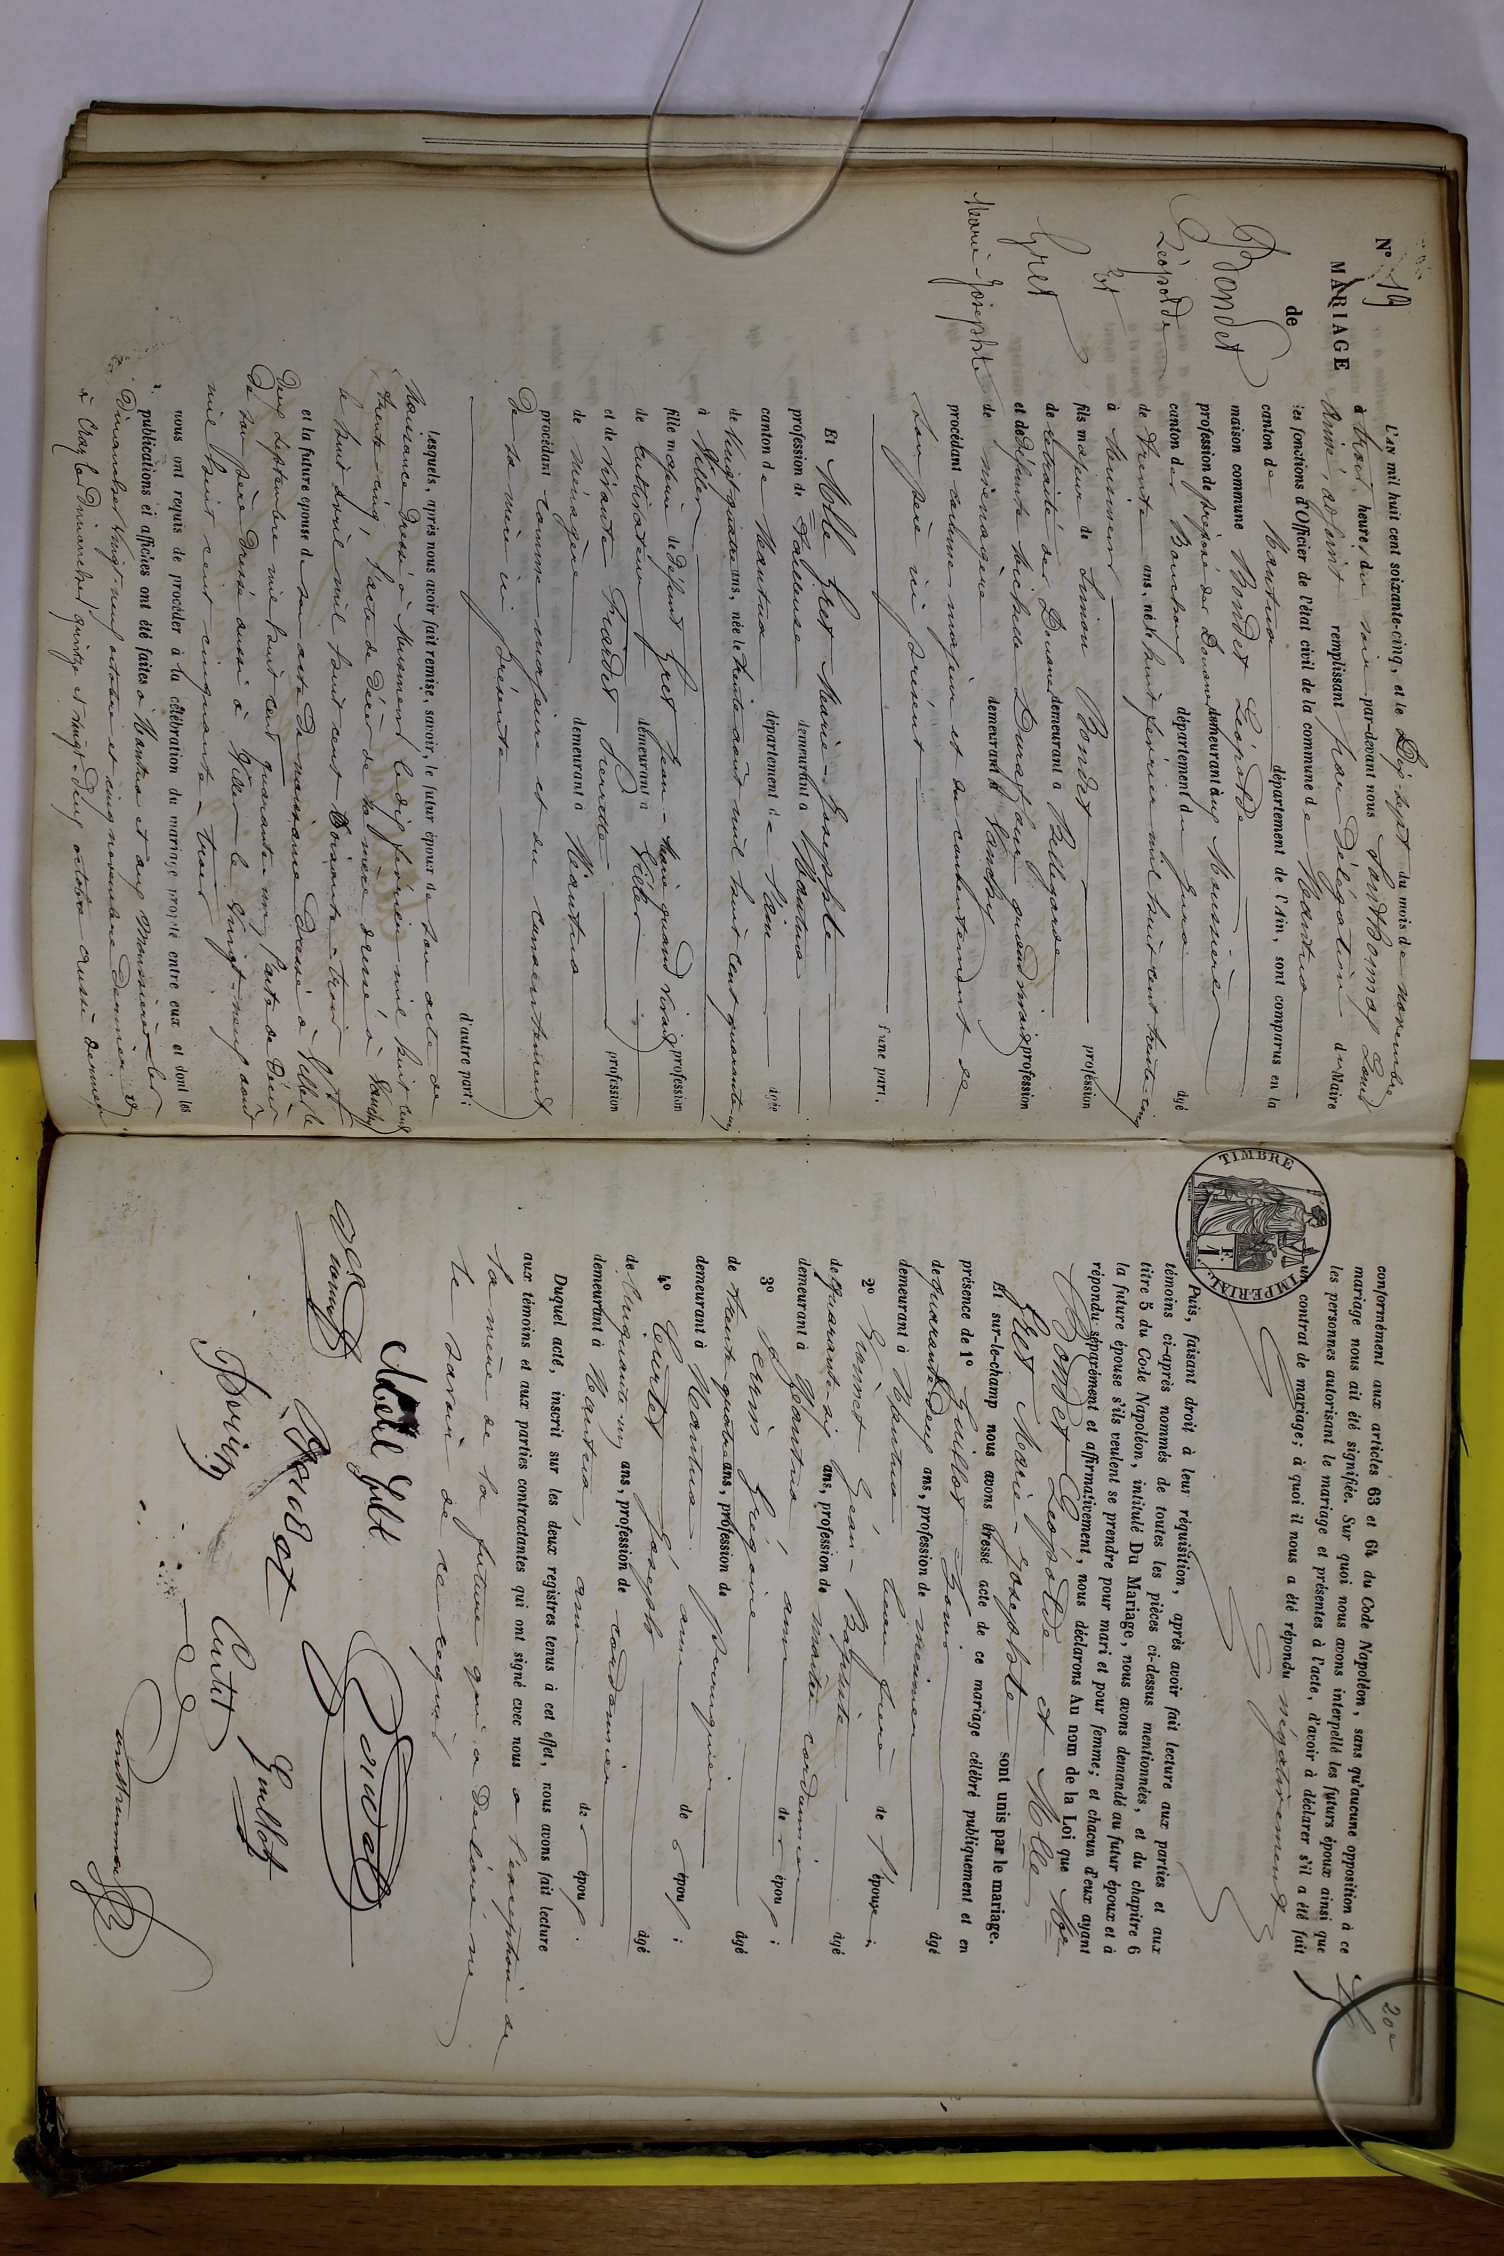 N° 19
MARIAGE
de
Bondet
Léopolde
Et
Gret
Marie-Josephte
L'AN mil huit cent soixante-cinq, et le Dix-sept du mois de novembre
à trois heures du soir par-devant nous
Aimé, adjoint remplissant par Délégation du Maire
les fonctions d'Officier de l'état civil de la commune de Nantua
canton de Nantua département de l'Ain, sont comparus en la
maison commune Bondet Léopolde
profession de préposé des Douanes demeurant aux Moussières
canton des Bouchoux département du Jura âgé
de trente ans, né le huit février mil huit cent trente cinq
à
fils majeur de Simon Bondet profession
de retraité des Douanes demeurant à Bellegarde
et de défunte Michelle quand vivait profession
de ménagère demeurant à Vanchy
procédant comme majeur et du consentement de
son père ici présent
d'une part;
Et Mlle Gret Marie-Josephte
profession de tailleuse demeurant à Nantua
canton de Nantua département de l'Ain âgée
de vingt quatre ans, née le trente août mil huit cent quarante un
à Villes
fille majeure de défunt Gret Jean-Marie quand vivait profession
de cultivateur demeurant à Villes
et de vivante profession
de ménagère demeurant à Nantua
procédant comme majeure et du consentement
de sa mère ici présente
d'autre part;
Lesquels, après nous avoir fait remise, savoir, le futur époux de son acte de
naissance dressé à le dix février mil huit cent
trente cinq, l'acte de décès de sa mère dressé à Vanchy
le huit avril mil huit cent soixante-trois
et la future épouse de son acte de naissance dressé à Villes le
deux septembre mil huit cent quarante un, l'acte de décès
de son père dressé aussi à Villes le vingt-neuf août
mil huit cent cinquante-trois
nous ont requis de procéder à la célébration du mariage projeté entre eux et dont les
publications et affiches ont été faites à Nantua et aux Moussières les
Dimanches vingt-neuf octobre et cinq novembre dernier et
à Craz les Dimanches quinze et vingt-deux octobre aussi dernier
20e
conformément aux articles 63 et 64 du Code Napoléon, sans qu'aucune opposition à ce
mariage nous ait été signifiée. Sur quoi nous avons interpellé les futurs époux ainsi que
les personnes autorisant le mariage et présentes à l'acte, d'avoir à déclarer s'il a été fait
un contrat de mariage; à quoi il nous a été répondu négativement
TIMBRE IMPERIAL
1 F.
Puis, faisant droit à leur réquisition, après avoir fait lecture aux parties et aux
témoins ci-après nommés de toutes les pièces ci-dessus mentionnées, et du chapitre 6
titre 5 du Code Napoléon, intitulé Du Mariage, nous avons demandé au futur époux et à
la future épouse s'ils veulent se prendre pour mari et pour femme; et chacun d'eux ayant
répondu séparément et affirmativement, nous déclarons Au nom de la Loi que Mr
Bondet Léopolde et Mlle
Gret Marie-Josephte sont unis par le mariage.
Et sur-le-champ nous avons dressé acte de ce mariage célébré publiquement et en
présence de 1° Guillot âgé
de quarante deux ans, profession de
demeurant à Nantua beau frère de l'épouse;
2° Jean-Baptiste âgé
de quarante six ans, profession de maître cordonnier
demeurant à Nantua, ami des époux;
3° Grégoire âgé
de trente quatre ans, profession de perruquier
demeurant à Nantua ami des époux;
4° Curtet Joseph âgé
de cinquante un ans, profession de cordonnier
demeurant à Nantua, ami des époux.
Duquel acte, inscrit sur les deux registres tenus à cet effet, nous avons fait lecture
aux témoins et aux parties contractantes qui ont signé avec nous à l'exception de
la mère de la future qui a déclaré ne
le savoir de ce requise.
Bondet
Curtet
Guillot